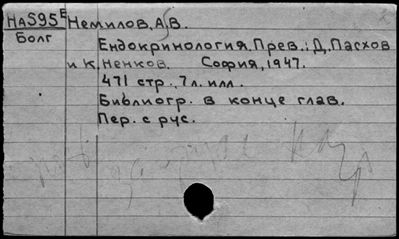 НАS95Е Немилов, А.В.
Болг
Ендокринология. Прев.: Д. Пасхов
и К. Ненков. София, 1947.
471 стр., 7 л. илл.
Библиогр. в конце глав.
Пер. с рус.